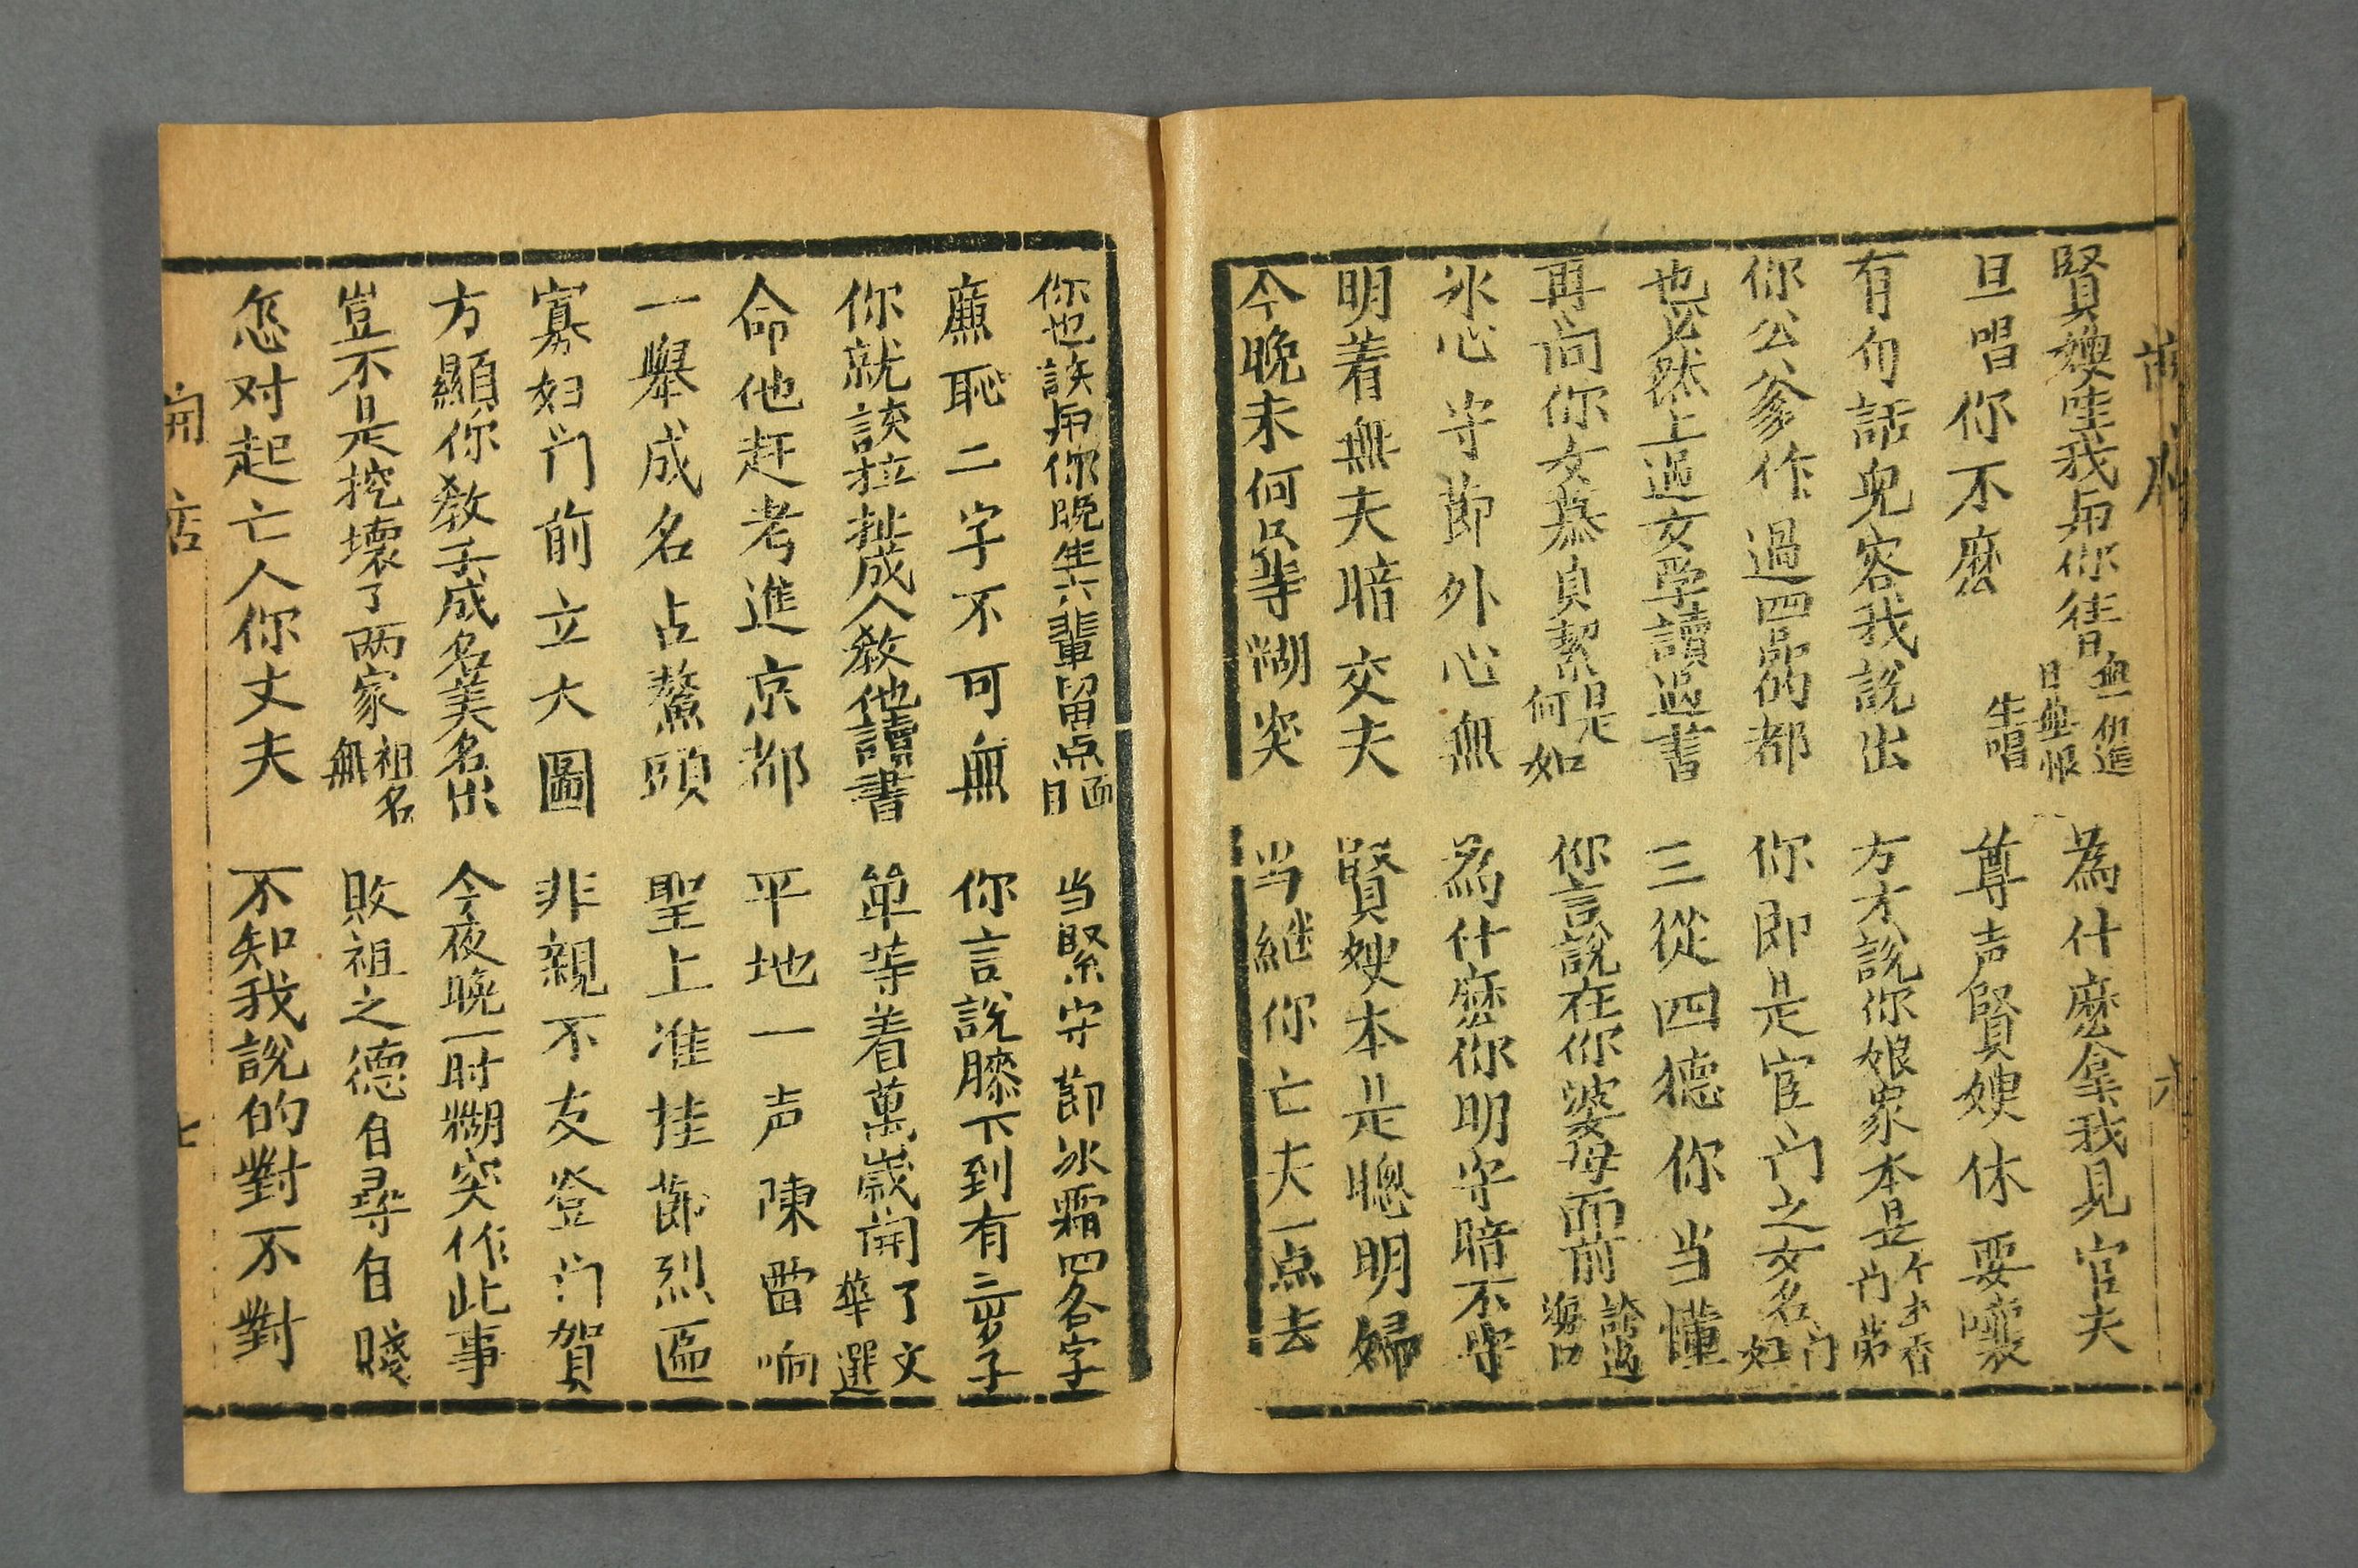 賢嫂哇我與你徃日無仇進日無恨　為什麽拿我見官夫
旦唱你不麽　生唱　尊声賢嫂休要嚷
有句話兒容我說出　方才說你娘家本是个書香门第
你公爹作過四品的都　你即是官门之女名门妇
也必然上過女学讀過書　三從四德你当懂
再问你女慕貞絜是何如　你言說在你婆母面前誇過海口
氷心守節外心無　為什麽你明守暗不守
明着無夫暗交夫　賢嫂本是聰明婦
今晚未何只等糊突　当継你亡夫一点去
你也該與你晚生六輩留点面目　当緊守節氷霜四各字
廉恥二字不可無　你言說膝下到有三岁子
你就該拉扯成人教他讀書　単等着萬嵗開了文華選
命他赶考進京都　平地一声陳雷响
一舉成名占鰲頭　聖上准挂節烈匾
寡妇门前立大圖　非親不友登门賀
方顯你教子成名美名出　今夜晚一时糊突作此事
豈不是挖壞了两家祖名無　敗祖之德自尋自賤
怎对起亡人你丈夫　不知我說的對不對
開店　七